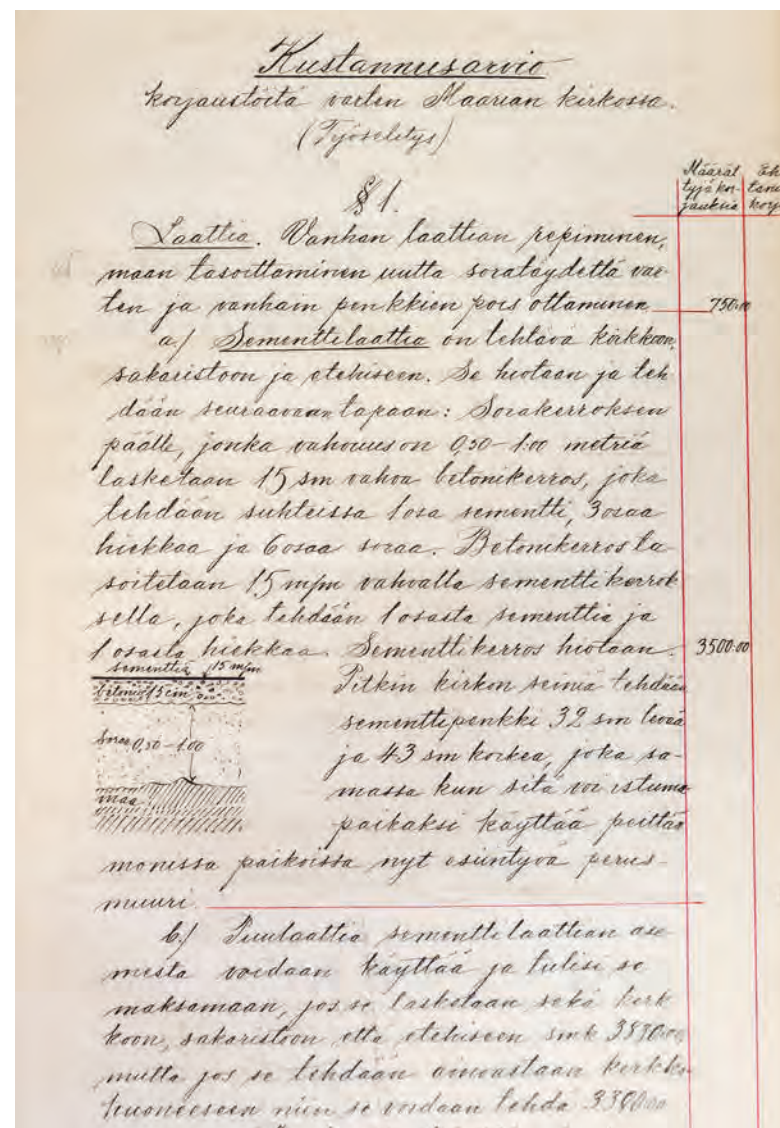 Kustannusarvio
korjaustöitä varten Maarian kirkossa.
(Työselitys)
Määrät
tyjä kor-
jauksia
§ 1.
Laattia. Vanhan laattian repiminen,
maan tasoittaminen uutta soratäydettä var
ten ja vanhain penkkien pois ottaminen 750.00
a/ Sementtilaattia on tehtävä kirkkoon,
sakaristoon ja etehiseen. Se hiotaan ja teh
dään seuraavaan tapaan: Sorakerroksen
päälle, jonka vahvuus on 0,50-1.00 metriä
lasketaan 15 sm vahva betonikerros, joka
tehdään suhteissa 1 osa sementti, 3 osaa
hiekkaa ja 6 osaa soraa. Betonikerros ta
soitetaan 15 m/m vahvalla sementtikerrok
sella, joka tehdään 1 osasta sementtiä ja
1 osasta hiekkaa. Sementtikerros hiotaan. 3500.00
sementtiä 15 m/m
betonia 15 cm
Soraa 0,50-1.00
maa
Pitkin kirkon seiniä tehdään
sementtipenkki 32 sm leveä
ja 43 sm korkea, joka sa-
massa kun sitä voi istuma
paikaksi käyttää peittää
monissa paikoissa nyt esiintyvä perus-
muuri.
b/ Puulaattia sementtilaattian ase
mesta voidaan käyttää ja tulisi se
maksamaan, jos se lasketaan sekä kirk
koon, sakaristoon että etehiseen smk 3830.00,
mutta jos se tehdään ainoastaan kirkko
huoneeseen niin se voidaan tehdä 3300.00